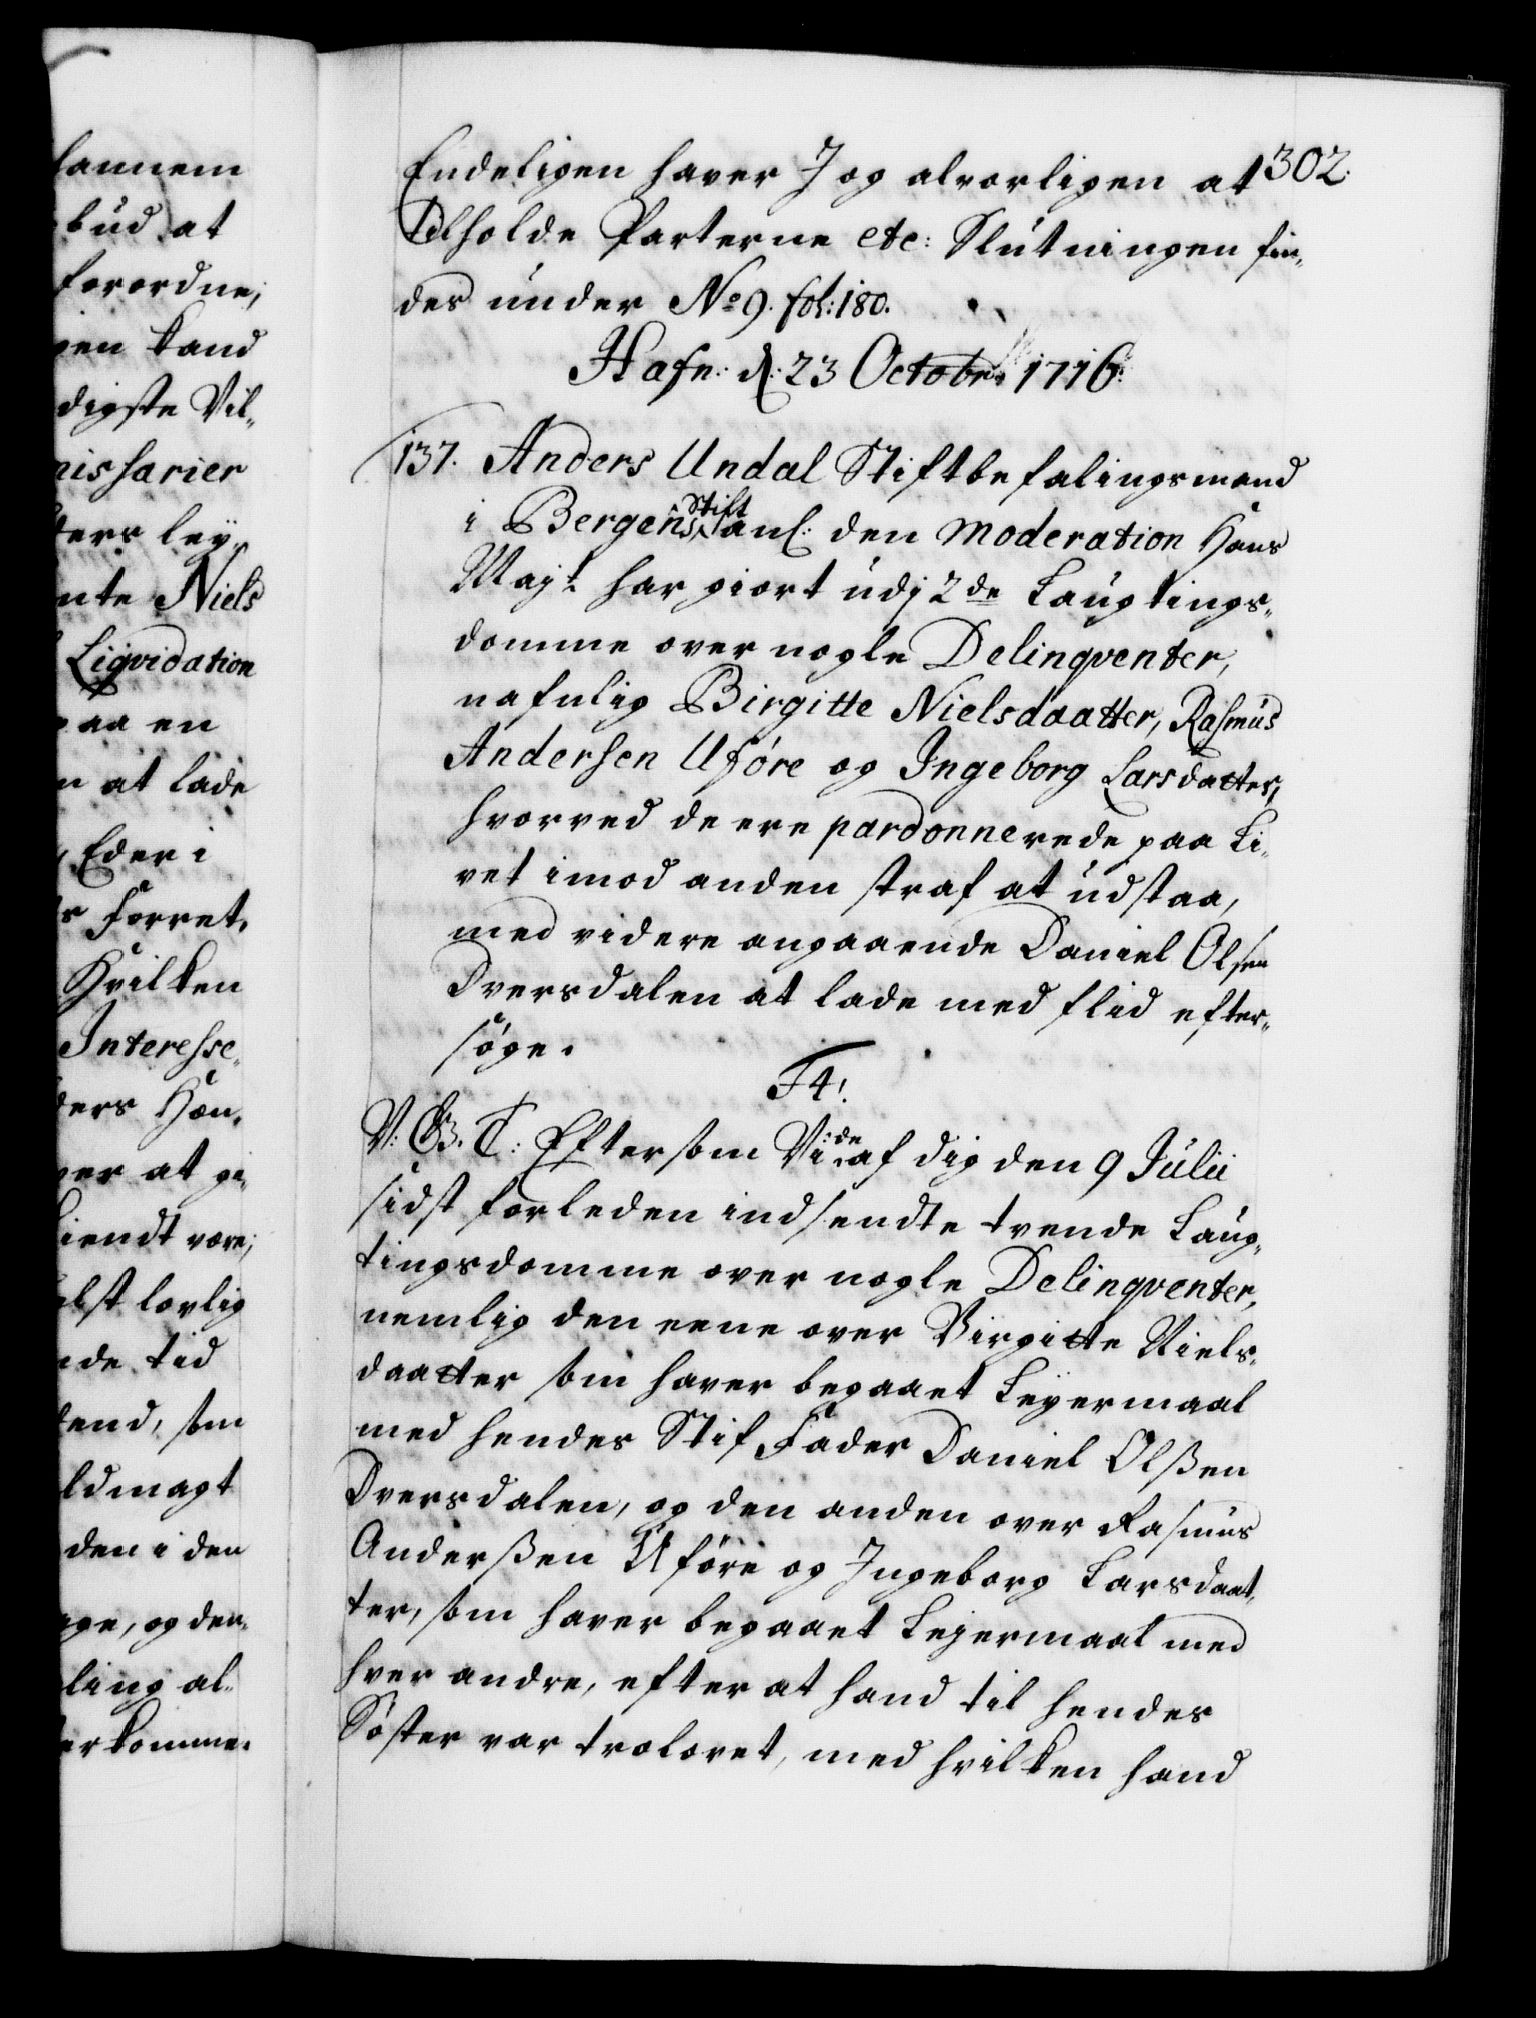 hannem
bud at
forordne,
gen kand
digste Vil-
missarier
ters ley
nte Niels
Liqvidation
paa en
n at lade
Eder i
s Forret,
Hvilken
Interesse
ders Hæn-
ver at gi-
kiendt være;
elst lovlig
nde tid
tend, som
ldmagt
den i den
age, og der-
ling al-
terkomme.
302.
Endeligen haver I og alvorligen at
tilholde Parterne etc: Slutningen fin-
des under No 9. fol: 180.
Hafn: d: 23 Octobr: 1716.
137. Anders Undal Stiftbefalingsmand
i Bergens Stift anl: den Moderation Hans
Mayt har giort udj 2de Laugtings-
domme over nogle Delinqventer,
nafnlig Birgitte Nielsdaatter, Rasmus
Andersen Uføre og Ingeborg Larsdatter,
hvorved de ere pardonnerede paa Li-
vet imod anden straf at udstaa,
med videre angaaende Daniel Olsen
Dversdalen at lade med flid efter-
søge.
F4!
V: G. T: Eftersom Vi de af dig den 9 Julii
sidst forleden indsendte tvende Laug-
tingsdomme over nogle Delinqventer,
nemlig den eene over Birgitte Niels-
daatter som haver begaaet Leyermaal
med hendes Stif Fader Daniel Olsßen
Dversdalen, og den anden over Rasmus
Anderßen Uføre og Ingeborg Larsdaat-
ter, som haver begaaet Lejermaal med
hver andre, efter at hand til hendes
Søster var trolovet, med hvilken hand